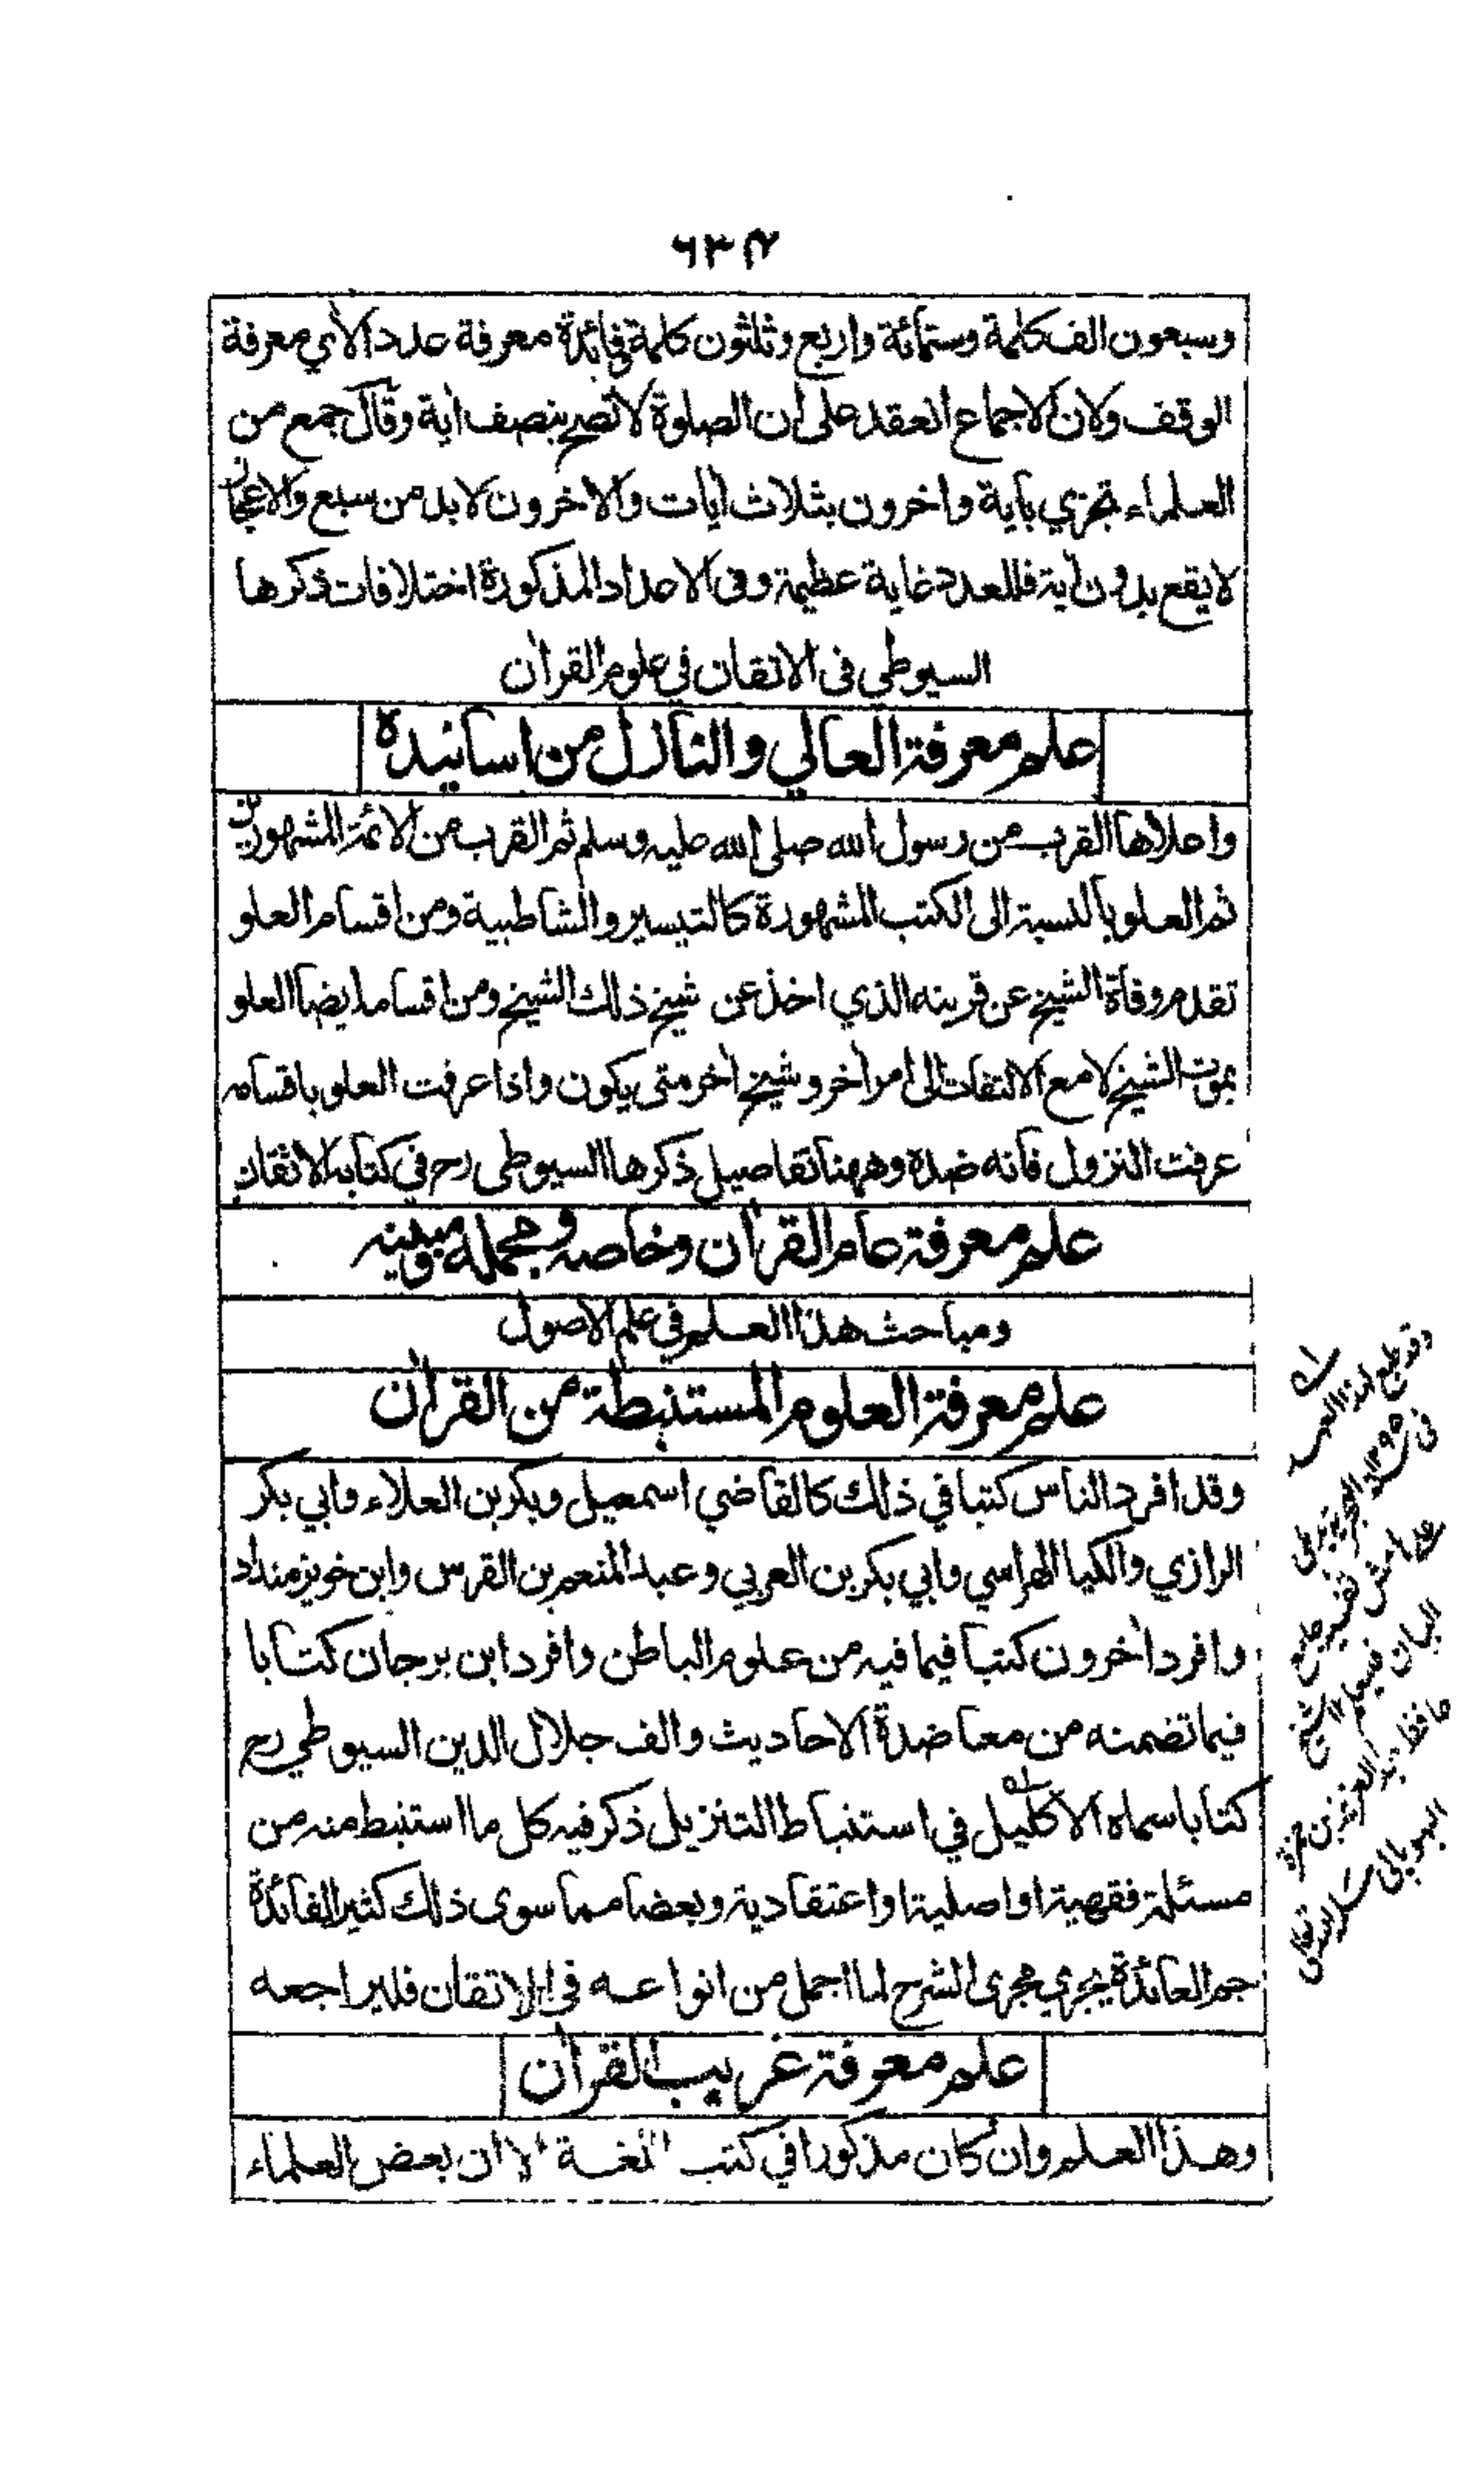 ٦٣٧
وسبعون الف كلمة وستمائة واربع وثلثون كلمة فائدة معرفة عدد الأي معرفة
الوقف ولان الاجماع انعقد على ان الصلوة لا تصح بنصف اية وقال جمع من
العلماء تجزي بأية واخرون بثلاث أيات والاخرون لا بد من سبع والاعجاز
لا يقع بدون أية فللعدد غاية عظيمة وفى الاعداد المذكورة اختلافات ذكرها
السيوطي فى الاتقان في علوم القران
علم معرفة العالي والنازل من اسانيده
واعلاها القرب من رسول الله صلى الله عليه وسلم ثم القرب من الائمة المشهورين
ثم العلو بالنسبة الى الكتب المشهورة كالتيسير والشاطبية ومن اقسام العلو
تقدم وفاة الشيخ عن قرينه الذي اخذ عن شيخ ذلك الشيخ ومن اقسامه ايضا العلو
بموت الشيخ لا مع الالتفات الى امر أخر وشيخ أخر متى يكون واذا عرفت العلو باقسامه
عرفت النزول فانه ضده وههنا تفاصيل ذكرها السيوطى رح في كتابه الاتقان
علم معرفة عام القران وخاصه ومجمله ومبينه
ومباحث هذا العلم في علم الاصول
علم معرفة العلوم المستنبطة من القران
وقد افرد الناس كتبا في ذلك كالقاضي اسمعيل وبكر بن العلاء وابي بكر
الرازي والكيا الهراسي وابي بكر بن العربي وعبد المنعم بن الفرس وابن خويزمنداد
وافرد أخرون كتبا فيما فيه من علوم الباطن وافرد ابن برجان كتابا
فيما تضمنه من معاضدة الاحاديث والف جلال الدين السيوطي رح
كتابا سماه الاكليل في استنباط التنزيل ذكر فيه كل ما استنبط منه من
مسئلة فقهية او اصلية او اعتقادية وبعضا مما سوى ذلك كثير الفائدة
جم العائدة يجري مجرى الشرح لما اجمل من انواعه في الاتقان فليراجعه
علم معرفة غريب القران
وهذا العلم وان كان مذكورا في كتب اللغة الا ان بعض العلماء
وقد طبع